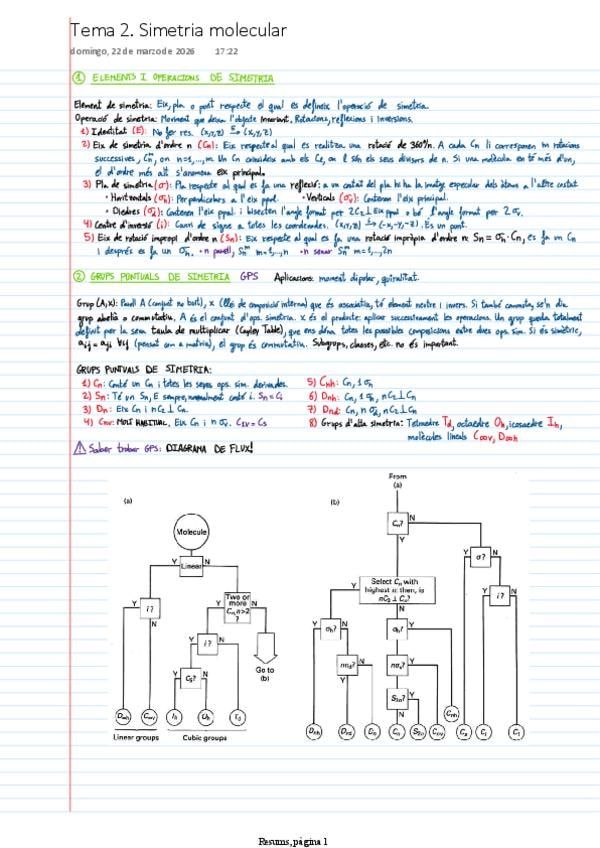 Tema 2. Simetria molecular
domingo, 22 de marzo de 2026 17:22
① ELEMENTS I OPERACIONS DE SIMETRIA
Element de simetria: Eix, pla o punt respecte el qual es defineix l'operació de simetria.
Operació de simetria: Moviment que deixa l'objecte invariant. Rotacions, reflexions i inversions.
1) Identitat (E): No fer res. (x,y,z) E→ (x,y,z)
2) Eix de simetria d'ordre n (Cn): Eix respecte al qual es realitza una rotació de 360º/n. A cada Cn li corresponen m rotacions
successives, Cnᵐ, on m=1,...,n. Un Cn coincideix amb els Cℓ, on ℓ són els seus divisors de n. Si una molècula en té més d'un,
el d'ordre més alt s'anomena eix principal.
3) Pla de simetria (σ): Pla respecte al qual es fa una reflexió: a un costat del pla hi ha la imatge especular dels àtoms a l'altre costat
· Horitzontals (σh): Perpendiculars a l'eix ppal. · Verticals (σv): Contenen l'eix principal.
· Diedres (σd): Contenen l'eix ppal i bisecten l'angle format per 2C₂⊥Eix ppal o bé l'angle format per 2σv.
4) Centre d'inversió (i): Canvi de signe a totes les coordenades. (x,y,z) i→ (-x,-y,-z). És un punt.
5) Eix de rotació impropi d'ordre n (Sn): Eix respecte al qual es fa una rotació impròpia d'ordre n: Sn = σh·Cn, es fa un Cn
i després es fa un σh. ·n parell, Snᵐ m=1,...,n ·n senar Snᵐ m=1,...,2n
② GRUPS PUNTUALS DE SIMETRIA GPS Aplicacions: moment dipolar, quiralitat.
Grup (A,x): Parell A (conjunt no buit), x (llei de composició interna) que és associativa, té element neutre i invers. Si també commuta, se'n diu
grup abelià o commutatiu. A és el conjunt d'ops. simetria. x és el producte: aplicar successivament les operacions. Un grup queda totalment
definit per la seva taula de multiplicar (Cayley Table), que ens dóna totes les possibles composicions entre dues ops. sim. Si és simètric,
aij = aji ∀ij (pensat com a matriu), el grup és commutatiu. Subgrups, classes, etc. no és important.
GRUPS PUNTUALS DE SIMETRIA:
1) Cn: Conté un Cn i totes les seves ops. sim. derivades.
2) Sn: Té un Sn, E sempre, normalment conté i. S₂=Ci
3) Dn: Eix Cn i nC₂⊥Cn.
4) Cnv: MOLT HABITUAL. Eix Cn i nσv. C₁v=Cs
5) Cnh: Cn, 1σh
6) Dnh: Cn, 1σh, nC₂⊥Cn
7) Dnd: Cn, nσd, nC₂⊥Cn
8) Grups d'alta simetria: Tetraedre Td, octaedre Oh, icosaedre Ih,
molècules lineals C∞v, D∞h
⚠ Saber trobar GPS: DIAGRAMA DE FLUX!
(a)
Molecule
Y Linear N
Y i? N
Two or
more
Cn, n>2
?
Y N
Y i? N
Y C₅? N
Go to
(b)
D∞h C∞v Ih Oh Td
Linear groups Cubic groups
(b)
From
(a)
Cn? N
Y
Y σ? N
Y i? N
Select Cn with
highest n; then, is
nC₂ ⊥ Cn?
Y N
Y σh? N
σh? Y
N
nσd? N
Y
nσv? Y
N
S2n? Y
N
Dnh Dnd Dn Cn S2n Cnv Cnh Cs Ci C1
Resums, página 1